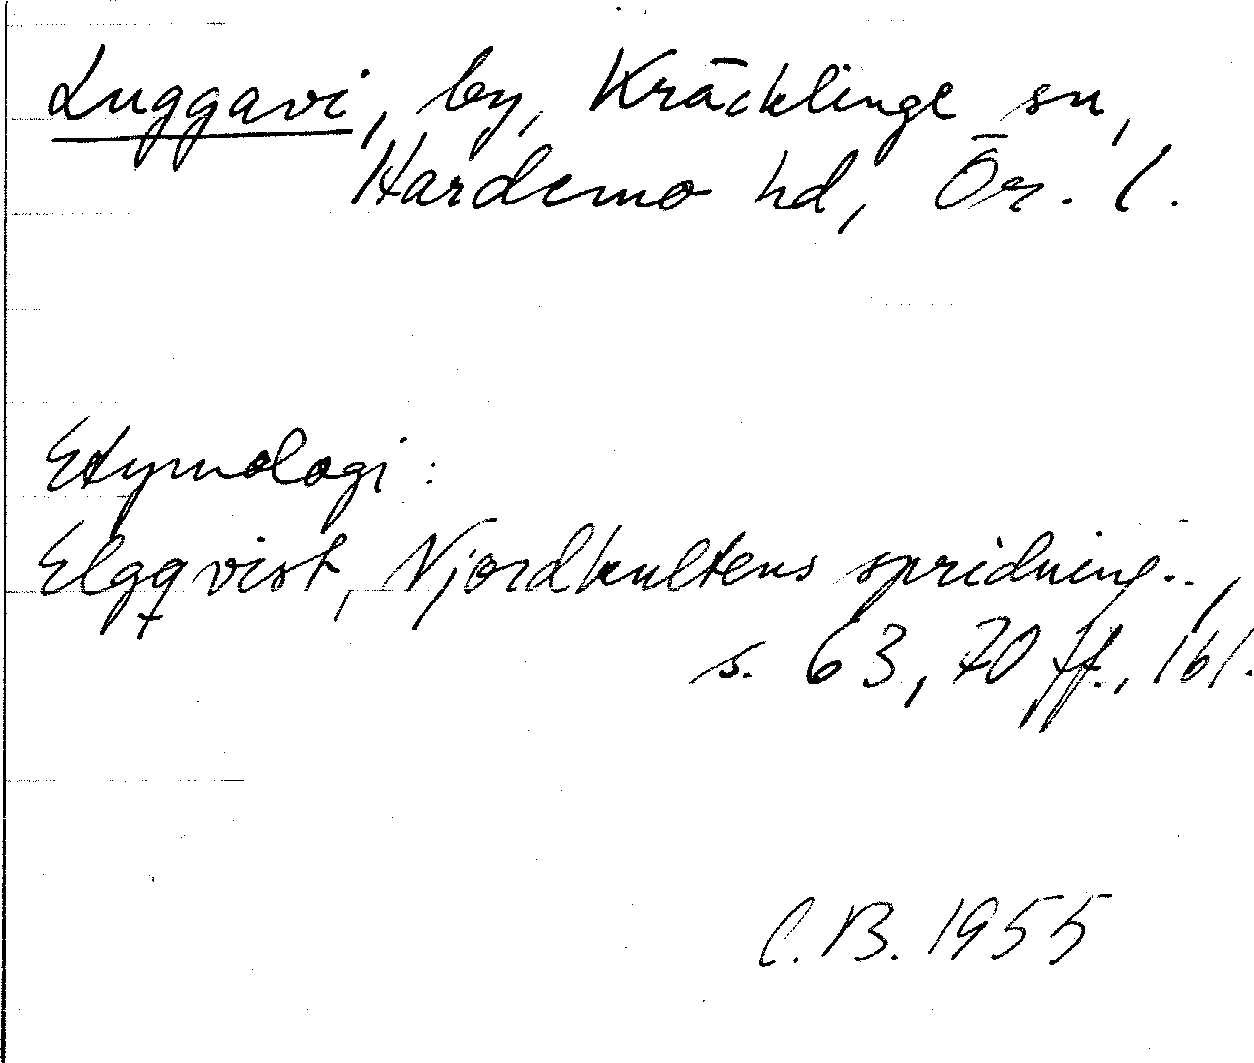 Luggavi, by, Kräcklinge sn,
Hardemo hd, Ör. l.
Etymologi:
Elgqvist, Njordkultens spridning..,
s. 63, 70 ff., 161.
C.B. 1955